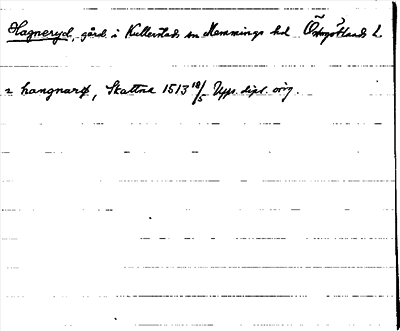 Hagneryd, gård i Kullerstads sn Memmings hd Östergötlands l.
i hangnarø, Skattna 1513 18/5 Upps. dipl. orig.